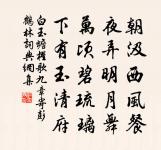 朝汲西風餐
夜弄明月舞
萬頃碧琉璃
下有玉清府
白玉蟾櫂歌九章寄彭
鶴林詞典網集